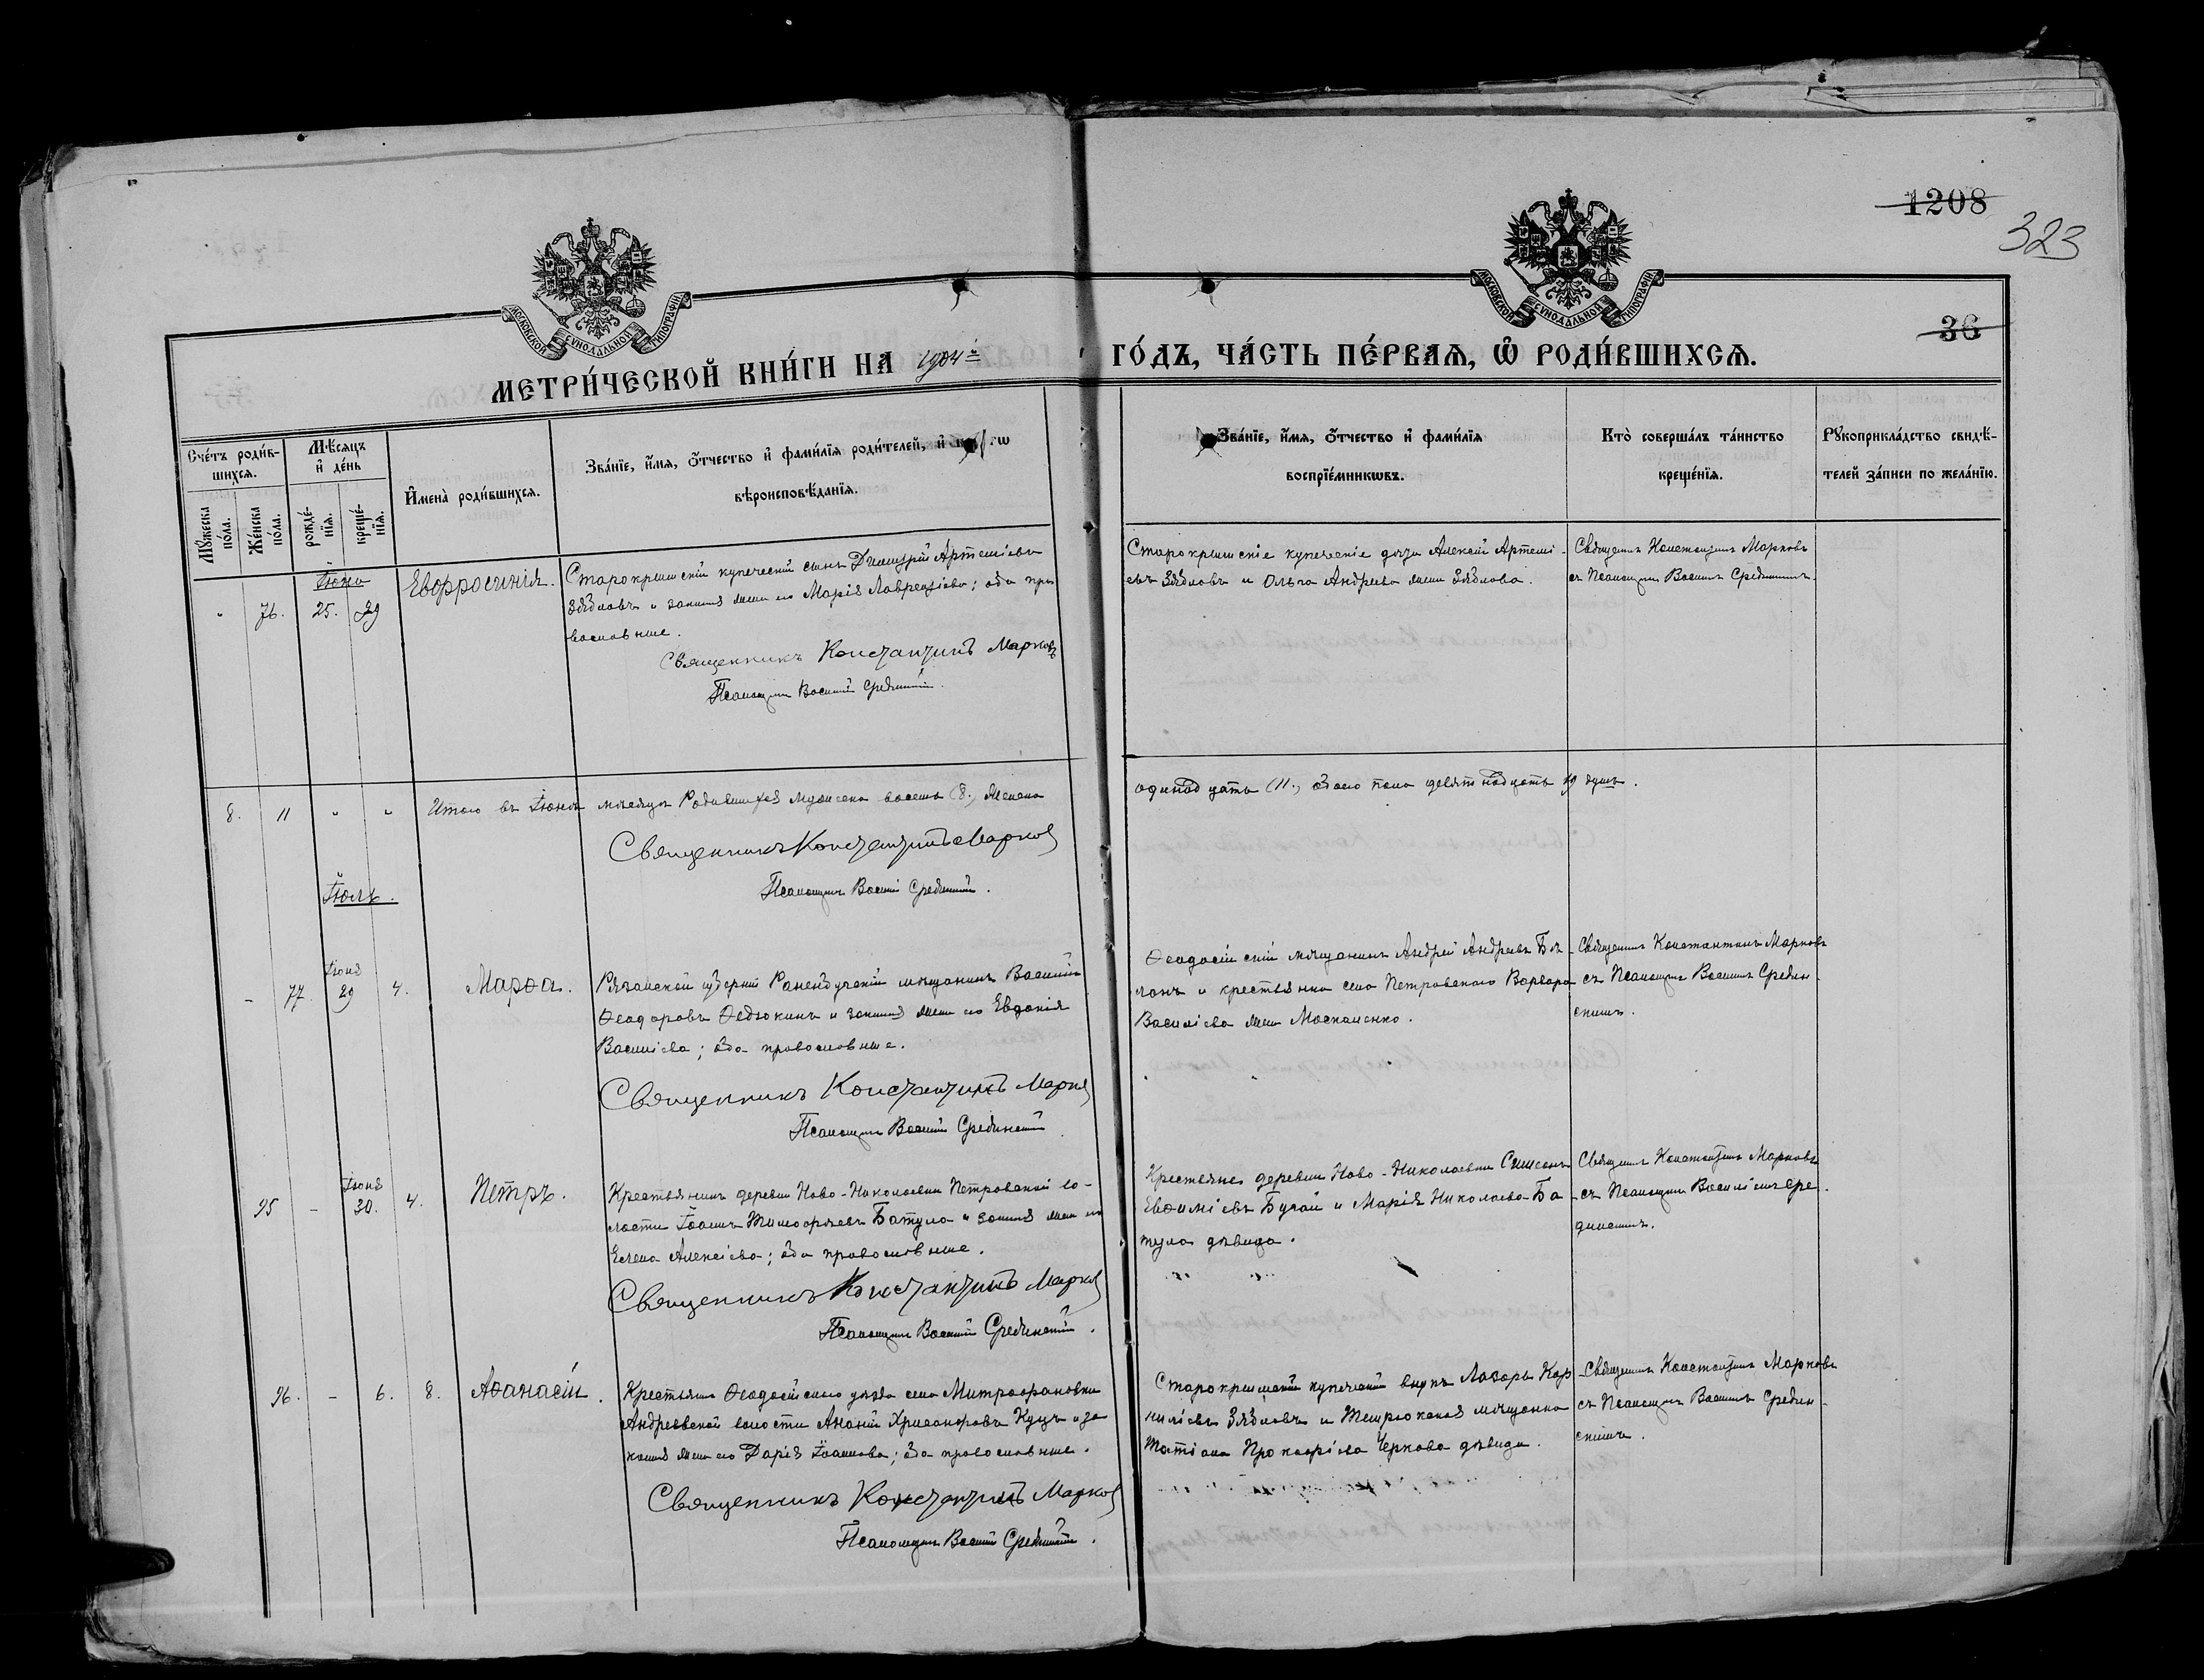 1208
323
36
МОСКОВСКОЙ СѴНОДАЛЬНОЙ ТИПОГРАФІИ
МОСКОВСКОЙ СѴНОДАЛЬНОЙ ТИПОГРАФІИ
МЕТРИ́ЧЕСКОЙ КНИ́ГИ НА 1904 й ГО́ДЪ, ЧА́СТЬ ПЕ́РВАЯ, Ѡ҆ РОДИ́ВШИХСЯ.
Сче́тъ роди́в-
шихся.
Мꙋ́жеска по́ла.
Же́нска по́ла.
Мѣ́сяцъ
и҆ де́нь
рожде́-
нїя.
креще́-
нїя.
И҆мена̀ роди́вшихся.
Зва́нїе, и҆́мя, ѻ҆́тчество и҆ фами́лїя роди́телей, и҆
вѣроисповѣ́данїя.
Зва́нїе, и҆́мя, ѻ҆́тчество и҆ фами́лїя
воспрїе́мникѡвъ.
Кто̀ соверша́лъ та́инство
креще́нїя.
Рꙋкоприкла́дство свидѣ́-
телей за́писи по жела́нїю.
Іюнь
" 76. 25. 29
Евфросинія.
Старокрымскій купеческій сынъ Димитрій Артеміевъ
Зябловъ и законная жена его Марія Лаврентіева; оба пра
вославные.
Священникъ Константинъ Марковъ
Псаломщикъ Василій Срединскій.
Старокрымскіе купеческіе дѣти Алексѣй Артемі-
евъ Зябловъ и Ольга Андреева жена Зяблова.
Священникъ Константинъ Марковъ
съ Псаломщикомъ Василіемъ Срединскимъ.
8. 11 " " Итого въ Іюнѣ мѣсяцѣ Родившихся мужеска восемь (8.) Женска
одинадцать (11.) обоего пола девятнадцать 19 душъ.
Священникъ Константинъ Марковъ
Псаломщикъ Василій Срединскій.
Іюль.
- 77. Іюня 29 4.
Марѳа.
Рязанской губерніи Раненбургскій мѣщанинъ Василій
Ѳеодоровъ Ѳедюкинъ и законная жена его Евдокія
Василіева; оба православные.
Священникъ Константинъ Марковъ
Псаломщикъ Василій Срединскій
Ѳеодосійскій мѣщанинъ Андрей Андреевъ
и крестьянка села Петровскаго Варвара
Василіева жена Москаленко.
Священникъ Константинъ Марковъ
съ Псаломщикомъ Василіемъ Средин-
скимъ.
95 - Іюня 30. 4.
Петръ.
Крестьянинъ деревни Ново-Николаевки Петровской во-
лости Іоаннъ Тимоѳеевъ Батула и законная жена его
Елена Алексіева; оба православные.
Священникъ Константинъ Марковъ
Псаломщикъ Василій Срединскій.
Крестьяне деревни Ново-Николаевки Симеонъ
Евѳиміевъ Бугай и Марія Николаева Ба-
тула дѣвица.
Священникъ Константинъ Марковъ
съ Псаломщикомъ Василіемъ Сре-
динскимъ.
96. - 6. 8.
Аѳанасій.
Крестьянинъ Ѳеодосійскаго уѣзда села Митрофановки
Андреевской волости Ананій Хрисанфовъ Куцъ и за
конная жена его Дарія Іоаннова; оба православные.
Священникъ Константинъ Марковъ
Псаломщикъ Василій Срединскій.
Старокрымскій купеческій внукъ Лазарь Кор
ниліевъ Зябловъ и Темрюкская мѣщанка
Татіана Прокофіева Чернова дѣвица.
Священникъ Константинъ Марковъ
съ Псаломщикомъ Василіемъ Средин-
скимъ.